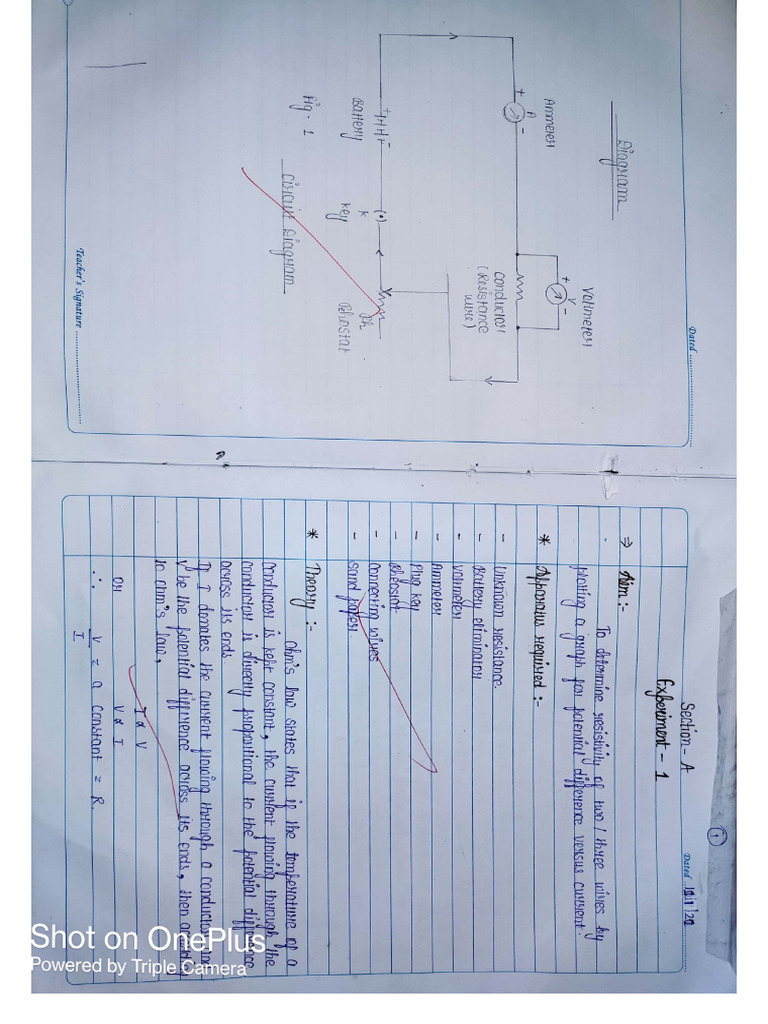 Dated
Diagram
Voltmeter
+ V -
Ammeter
+ A -
Conductor
(Resistance
wire)
Battery
K
Key
Rh
Rheostat
Fig. 1
Circuit Diagram
Teacher's Signature
1
Section - A
Dated
Experiment - 1
⇒ Aim :-
To determine resistivity of two / three wires by
plotting a graph for potential difference versus current.
* Apparatus required :-
- Unknown resistance
- Battery eliminator
- Voltmeter
- Ammeter
- Plug key
- Rheostat
- Connecting wires
- Sand paper
* Theory :-
Ohm's law states that if the temperature of a
conductor is kept constant, the current flowing through the
conductor is directly proportional to the potential difference
across its ends.
If I donates the current flowing through a conductor and
V be the potential difference across its ends, then
to ohm's law,
I ∝ V
or V ∝ I
∴ V/I = a constant = R.
Shot on OnePlus
Powered by Triple Camera